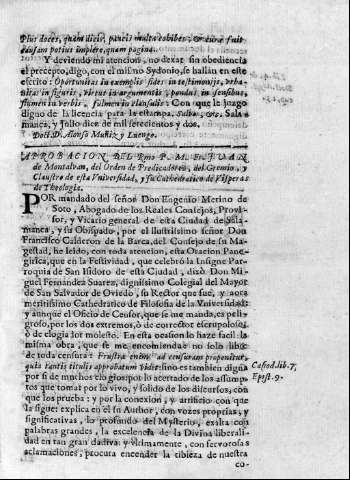 Plus doces, quam dicis, paucis multa cohibes, & curæ fuit
causam potius implere, quam paginam.
Y deviendo mi atencion, no dexar sin obediencia
el precepto, digo, con el mismo Sydonio, se hallan en este
escrito: Oportunitas in exemplis, fides in testimonijs, vrba-
nitas in figuris, virtus in argumentis, pondus in sensibus,
flumen in verbis, fulmen in clausulis: Con que le juzgo
digno de la licencia para la estampa. Salvo, &c. Sala-
manca, y Julio diez de mil setecientos y dos.
Doct. D. Alonso Muñiz y Luengo.
APROBACION DEL Rmo P. M. Fr. JUAN
de Montalvan, del Orden de Predicadores, del Gremio, y
Claustro de esta Vniversidad, y su Cathedratico de Visperas
de Theologia.
POR mandado del señor Don Eugenio Merino de
Soto, Abogado de los Reales Consejos, Provi-
sor, y Vicario general de esta Ciudad de Sala-
manca, y su Obispado, por el Ilustrissimo señor Don
Francisco Calderon de la Barca, del Consejo de su Ma-
gestad, he leido, con toda atencion, esta Oracion Pane-
girica, que en la Festividad, que celebrò la Insigne Par-
roquia de San Isidoro de esta Ciudad, dixo Don Mi-
guel Fernandez Suarez, dignissimo Colegial del Mayor
de San Salvador de Oviedo, su Rector que fue, y aora
meritissimo Cathedratico de Filosofia de la Vniversidad:
y aunque el Oficio de Censor, que se me manda, es peli-
groso, por los dos extremos, ò de corrector escrupuloso,
ò de elogiador molesto. En esta ocasion lo haze facil la
misma obra, que se me encomienda: no solo libre
de toda censura: Frustra enim ad censuram proponitur,
quia tantis titulis approbatum Vidit: sino es tambien digna
por si de muchos elogios: por lo acertado de los assump-
tos que tomò por lo vivo, y solido de los discursos, con
que los prueba: y por la conexion, y artificio con que
la sigue: explica en el su Author, con vozes proprias, y
significativas, lo profundo del Mysterio, exalta con
palabras grandes, la excelencia de la Divina liberali-
dad en tan gran dadiva: y vltimamente, con fervorosas
aclamaciones, procura encender la tibieza de nuestra
co-
Casiod. lib. 7,
Epist. 9.